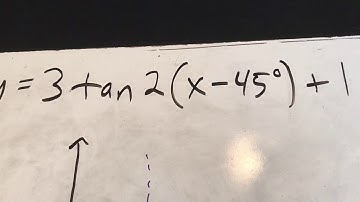 y = 3 tan 2(x - 45°) + 1